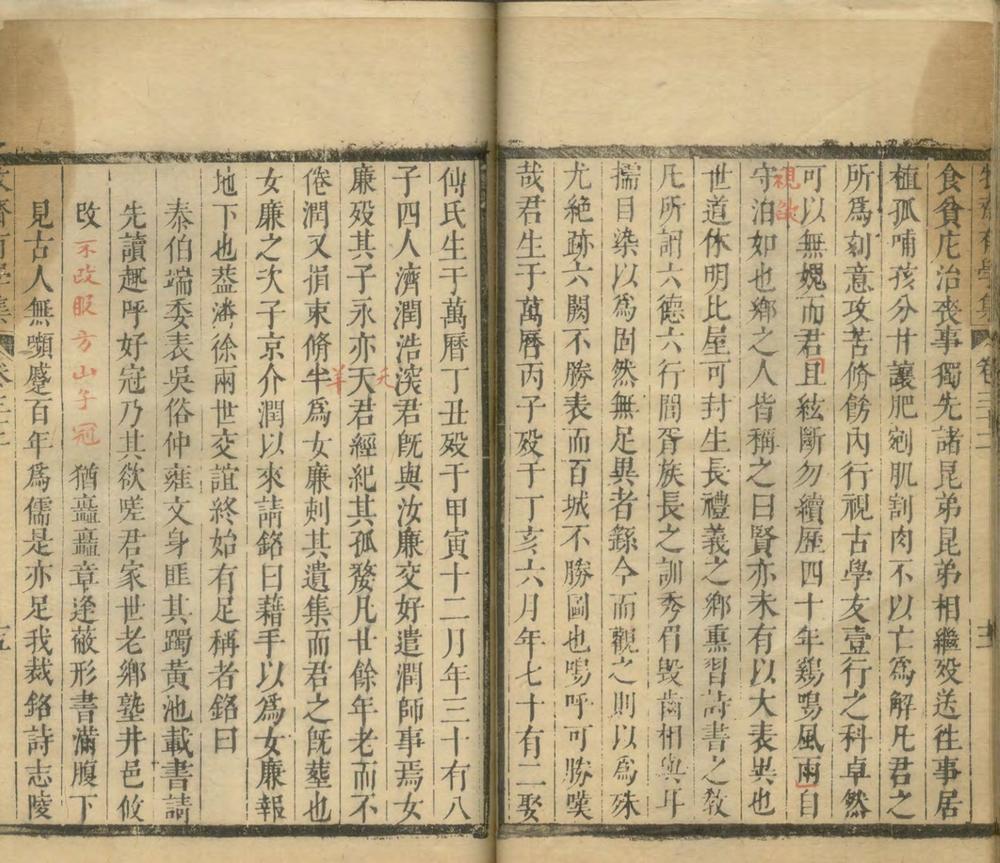 牧齋有學集 卷三十二
食貧庀治喪事獨先諸昆弟昆弟相繼歿送徃事居
植孤哺孩分甘讓肥剜肌割肉不以亡為解凡君之
所為刻意攻苦脩飭內行視古學友壹行之科卓然
可以無媿而君且絃斷勿續歷四十年鷄鳴風雨自
視欲
守泊如也鄉之人皆稱之曰賢亦未有以大表異也
世道休明比屋可封生長禮義之鄉熏習詩書之敎
凡所謂六德六行閭胥族長之訓秀眉毀齒相與耳
擩目染以為固然無足異者繇今而觀之則以為殊
尤絕跡六闕不勝表而百城不勝圖也嗚呼可勝嘆
哉君生于萬曆丙子歿于丁亥六月年七十有二娶
傳氏生于萬曆丁丑歿于甲寅十二月年三十有八
子四人濟潤浩淡君旣與汝廉交好遣潤師事焉女
廉歿其子永亦天君經紀其孤嫠凡廿餘年老而不
夭
倦潤又捐束脩半為女廉刺其遺集而君之旣葬也
羊
女廉之次子京介潤以來請銘曰藉手以為女廉報
地下也葢濟徐兩世交誼終始有足稱者銘曰
泰伯端委表吳俗仲雍文身匪其躅黃池載書請
先讀趣呼好冠乃其欲嗟君家世老鄉塾井邑攸
改 不改眼方山子冠 猶矗矗章逢蔽形書滿腹下
見古人無嚬蹙百年為儒是亦足我裁銘詩志陵